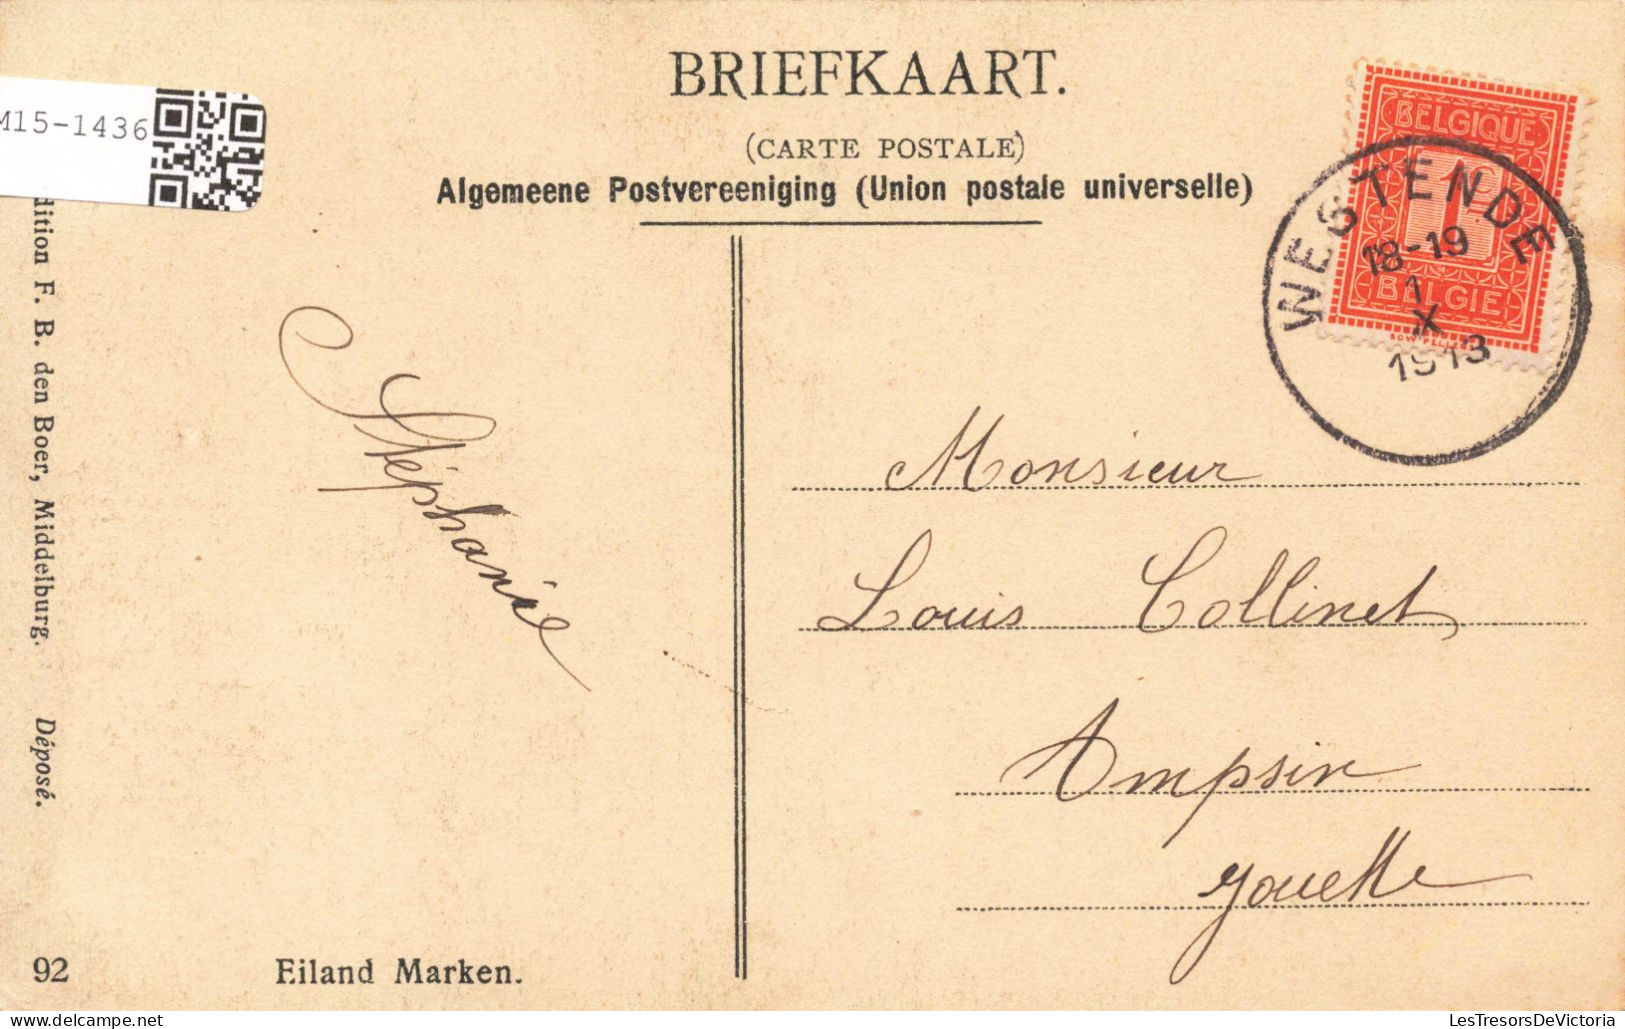 BRIEFKAART.
(CARTE POSTALE)
Algemeene Postvereeniging (Union postale universelle)
M15-1436
dition F. B. den Boer, Middelburg. Déposé.
BELGIQUE
1c
BELGIE
WESTENDE
18-19
1
X
1913
Stéphanie
Monsieur
Louis Collinet
Ampsin
92
Eiland Marken.
LesTresorsDeVictoria